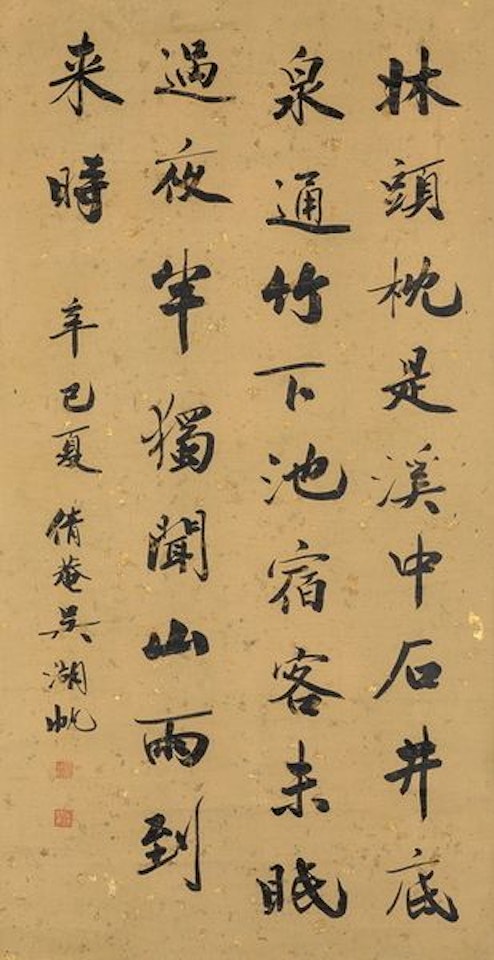 牀頭枕是溪中石井底
泉通竹下池宿客未眠
過夜半獨聞山雨到
来時
辛巳夏倩菴吳湖帆